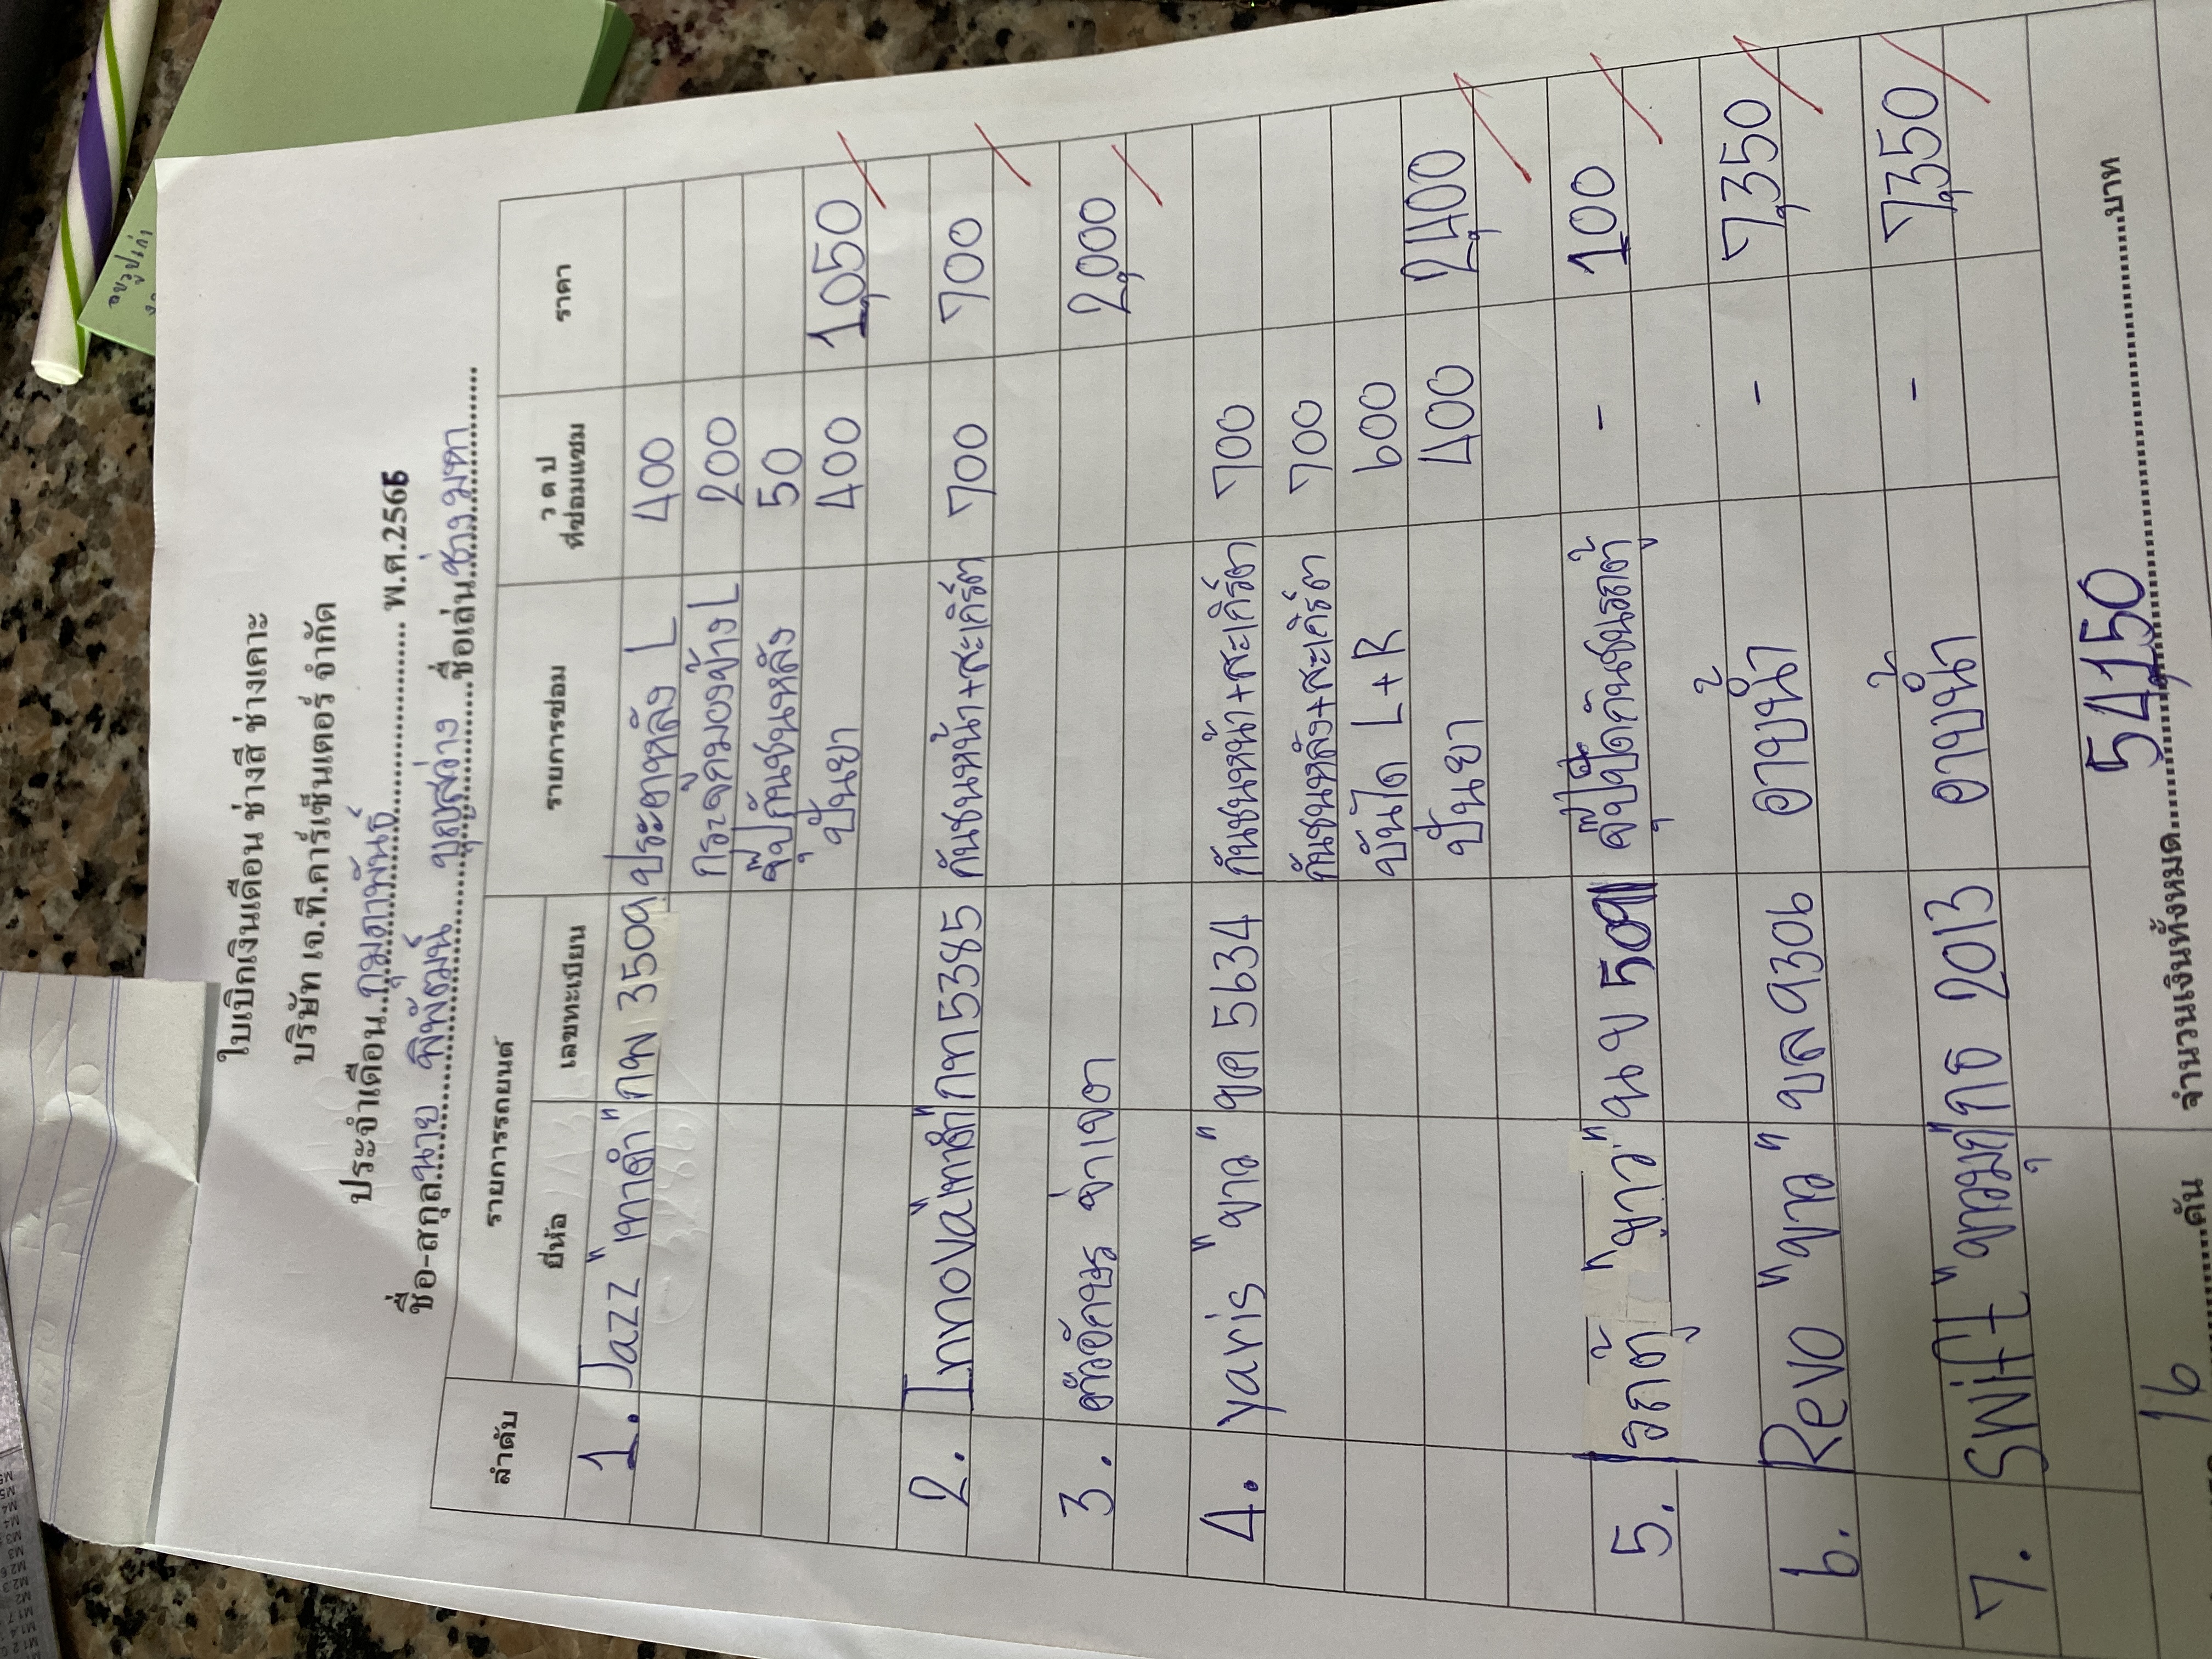 ใบเบิกเงินเดือน ช่างสี ช่างเคาะ
บริษัท เจ.ที.คาร์เซ็นเตอร์ จำกัด
ประจำเดือน..กุมภาพันธ์.......... พ.ศ.2566
ชื่อ-สกุล..นาย พิพัฒน์ บุญสว่าง ..ชื่อเล่น..ช่างมหา
ลำดับ รายการรถยนต์ รายการซ่อม ว ด ป ที่ซ่อมแซม ราคา
ยี่ห้อ เลขทะเบียน
1. Jazz "เทาดำ" กพ 3509 ประตูหลัง L 400
กระจกมองข้าง L 200
จุ๊ปกันชนหลัง 50
ปั่นยา 400 1,050
2. Innova "เทาดำ" กท 5385 กันชนหน้า+สะเกิร์ต 700 700
3. ตัวอักษร จ่าเจต 2,000
4. yaris "ขาว" ขค 5634 กันชนหน้า+สะเกิร์ต 700
กันชนหลัง+สะเกิร์ต 700
บันได L+R 600
ปั่นยา 400 2,400
5. รถตู้ "ขาว" นข กันชนรถตู้ - 100
6. Revo "ขาว" บล 9306 อาบน้ำ - 7,350
7. SWift "ขาวมุก" กธ 2013 อาบน้ำ - 7,350
16 คัน จำนวนเงินทั้งหมด 54,150 บาท